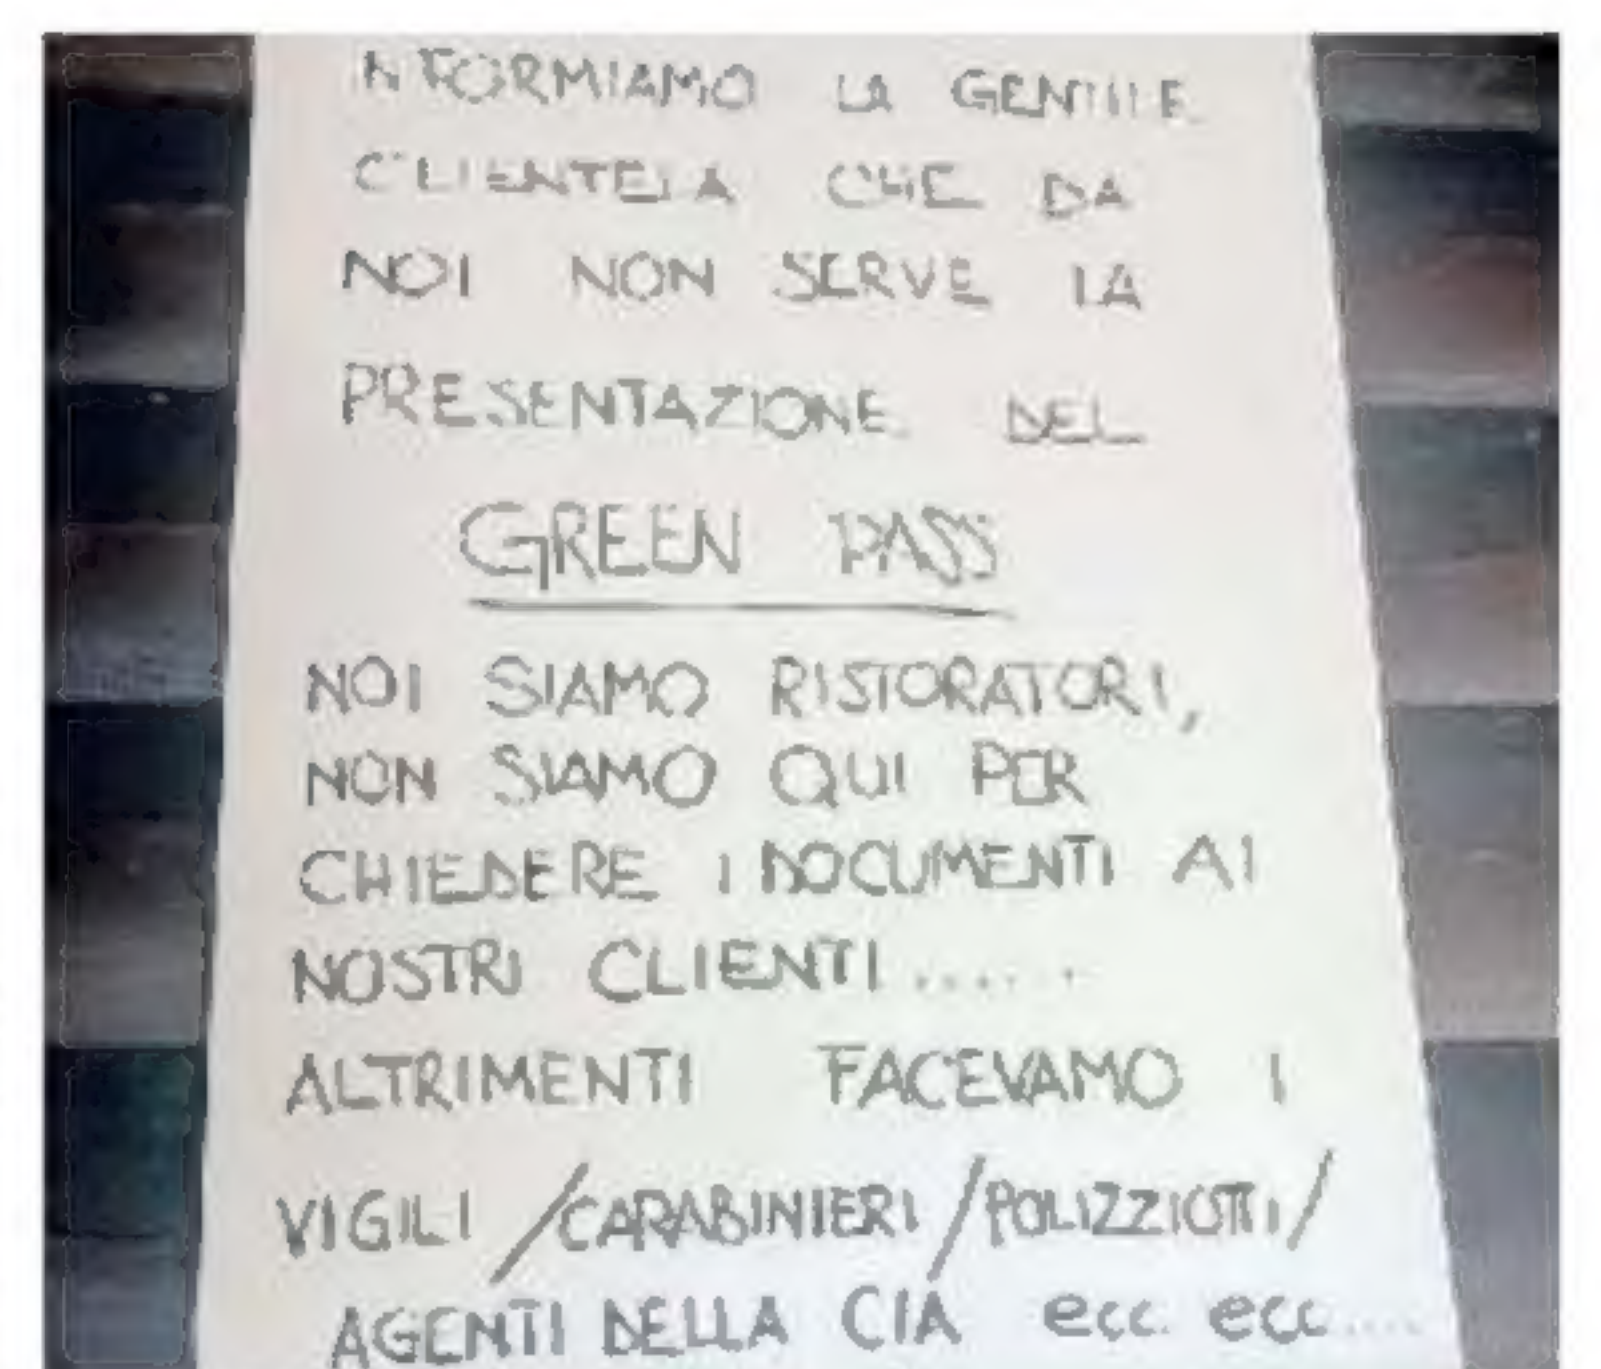 INFORMIAMO LA GENTILE
CLIENTELA CHE DA
NOI NON SERVE LA
PRESENTAZIONE DEL
GREEN PASS
NOI SIAMO RISTORATORI,
NON SIAMO QUI PER
CHIEDERE I DOCUMENTI AI
NOSTRI CLIENTI......
ALTRIMENTI FACEVAMO I
VIGILI /CARABINIERI /POLIZZIOTTI/
AGENTI DELLA CIA ecc. ecc....